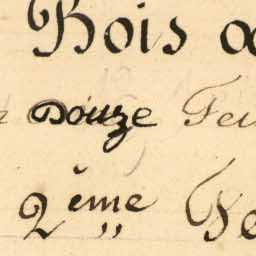 Bois
Douze Feu
2ème